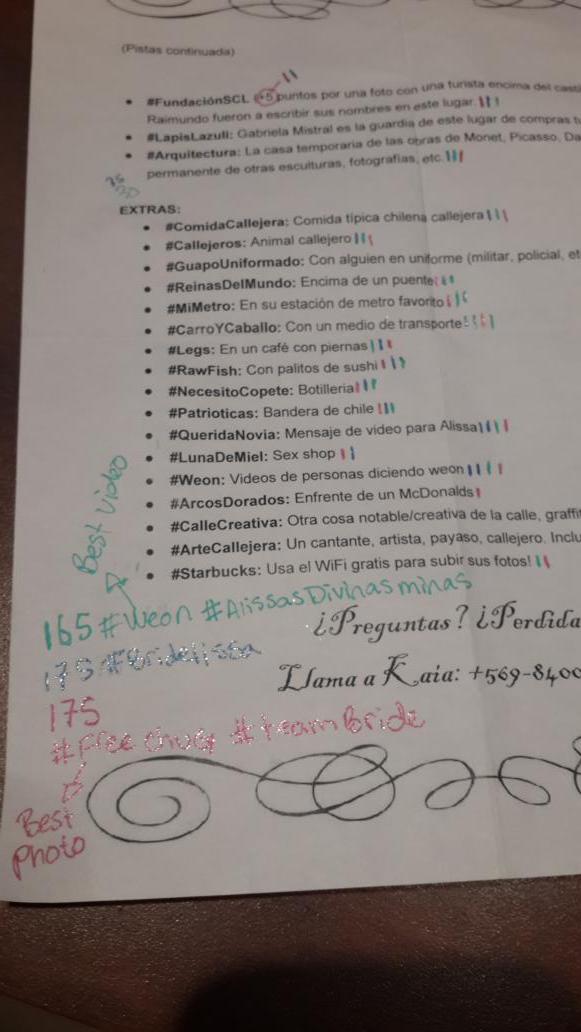 (Pistas continuada)
#FundaciónSCL (+5 puntos por una foto con una turista encima del
Raimundo fueron a escribir sus nombres en este lugar.
#LapisLazuli: Gabriela Mistral es la guardia de este lugar de compras
#Arquitectura: La casa temporaria de las obras de Monet, Picasso,
permanente de otras esculturas, fotografías, etc.
EXTRAS:
#ComidaCallejera: Comida típica chilena callejera
#Callejeros: Animal callejero
#GuapoUniformado: Con alguien en uniforme (militar, policial,
#ReinasDelMundo: Encima de un puente
#MiMetro: En su estación de metro favorito
#CarroYCaballo: Con un medio de transporte
#Legs: En un café con piernas
#RawFish: Con palitos de sushi
#NecesitoCopete: Botilleria
#Patrioticas: Bandera de chile
#QueridaNovia: Mensaje de video para Alissa
#LunaDeMiel: Sex shop
#Weon: Videos de personas diciendo weon
#ArcosDorados: Enfrente de un McDonalds
#CalleCreativa: Otra cosa notable/creativa de la calle,
#ArteCallejera: Un cantante, artista, payaso, callejero.
#Starbucks: Usa el WiFi gratis para subir sus fotos!
Best Video
165 #Weon #AlissasDivinasminas
¿Preguntas? ¿Perdida
175 #Bridelissa
Llama a Kaia: +569-8400
175
#teamBride
Best
Photo